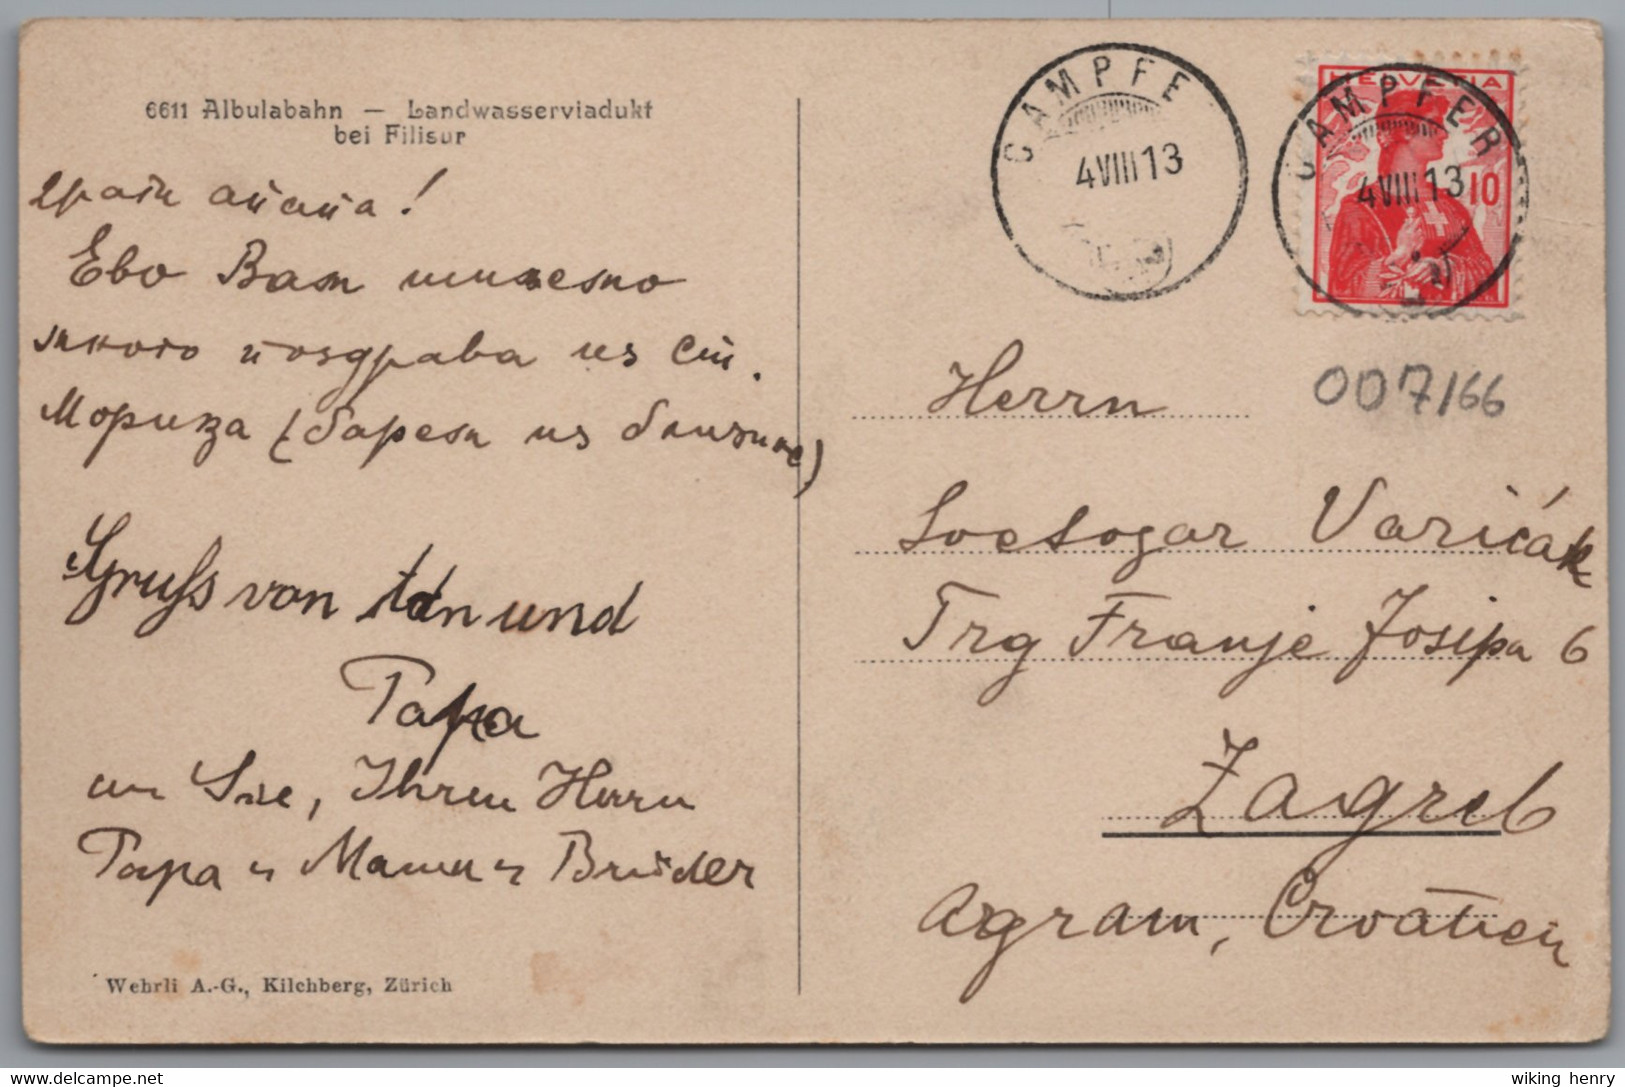 6611 Albulabahn — Landwasserviadukt
bei Filisur
Ево Вам
много поздрава из Ст.
Морица (барем из близине)
Gruss von und
Papa
an Sie, Ihren Herrn
Papa u Mama u Brüder
Wehrli A.-G., Kilchberg, Zürich
CAMPFE
4 VIII 13
HELVETIA
10
CAMPFER
4 VIII 13
007/66
Herrn
Svetozar Varićak
Trg Franje Josipa 6
Zagreb
Agram, Croatien
www.delcampe.net
wiking henry